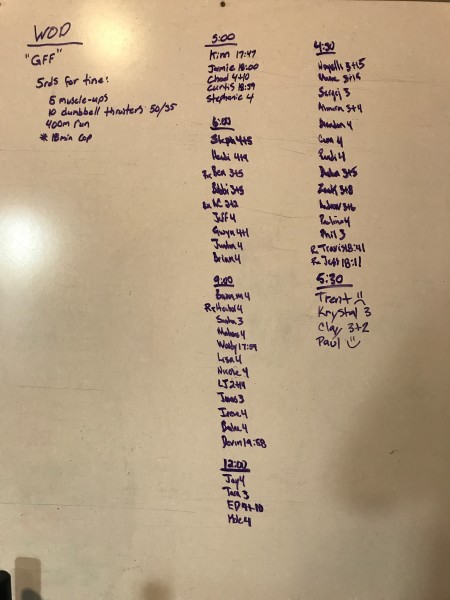 WOD
"GFF"
5rds for time:
5 muscle-ups
10 dumbbell thrusters 50/35
400m run
* 18 min cap
5:00
Kim 17:47
Jamie 18:00
Chad 4+10
Curtis 18:59
Stephanie 4
6:00
Steph 4+5
Heidi 4+9
Rx Ben 3+5
Bobbi 3+5
Rx KC 2+2
Jeff 4
Gwyn 4+1
Justin 4
Brian 4
9:00
4
Rx 4
3
4
Wally 17:59
Lisa 4
Nicole 4
LJ 2+9
James 3
Irene 4
4
Devin 19:58
12:00
Jay 4
Tara 3
ED 4+10
4
4:30
3+15
3+15
Sergij 3
3+4
Brandon 4
4
4
3+5
Zach 3+8
Andrew 3+6
Paulina 4
Phil 3
Rx Travis 18:41
Rx Jeff 18:11
5:30
Trent
Krystal 3
Clay 3+2
Paul